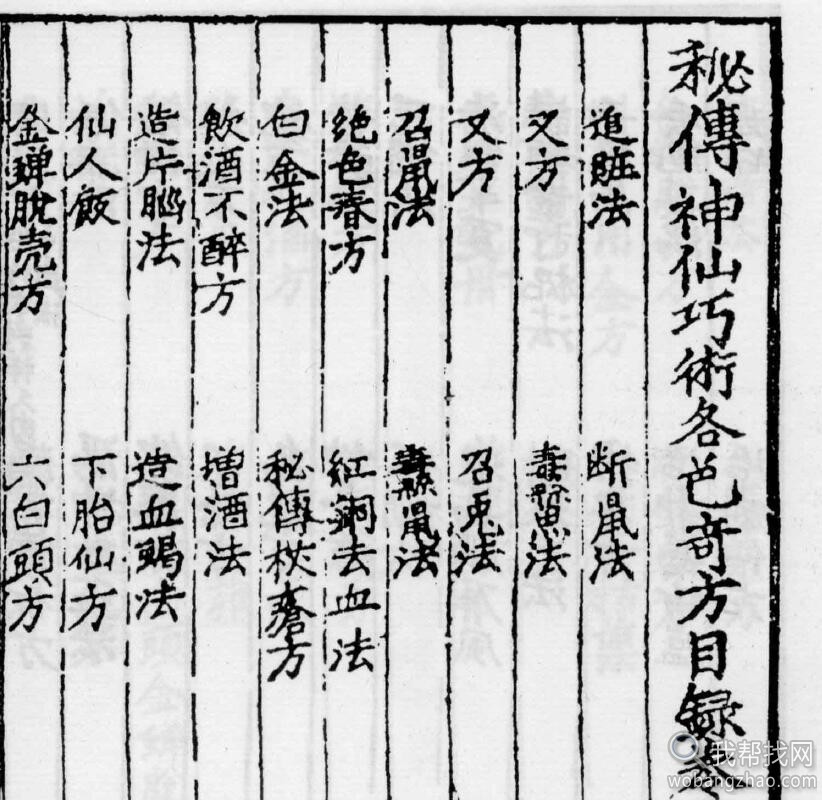 秘傳神仙巧術各色奇方目録
追賍法 断鼠法
又方 毒魚法
又方 召兎法
召鼠法 毒鼠法
绝色春方 紅去血法
白金法 秘傳杖瘡方
飲酒不醉方 增酒法
造片腦法 造血蝎法
仙人飯 下胎仙方
金蝉脫壳方 六白頭方
我帮找网
wobangzhao.com